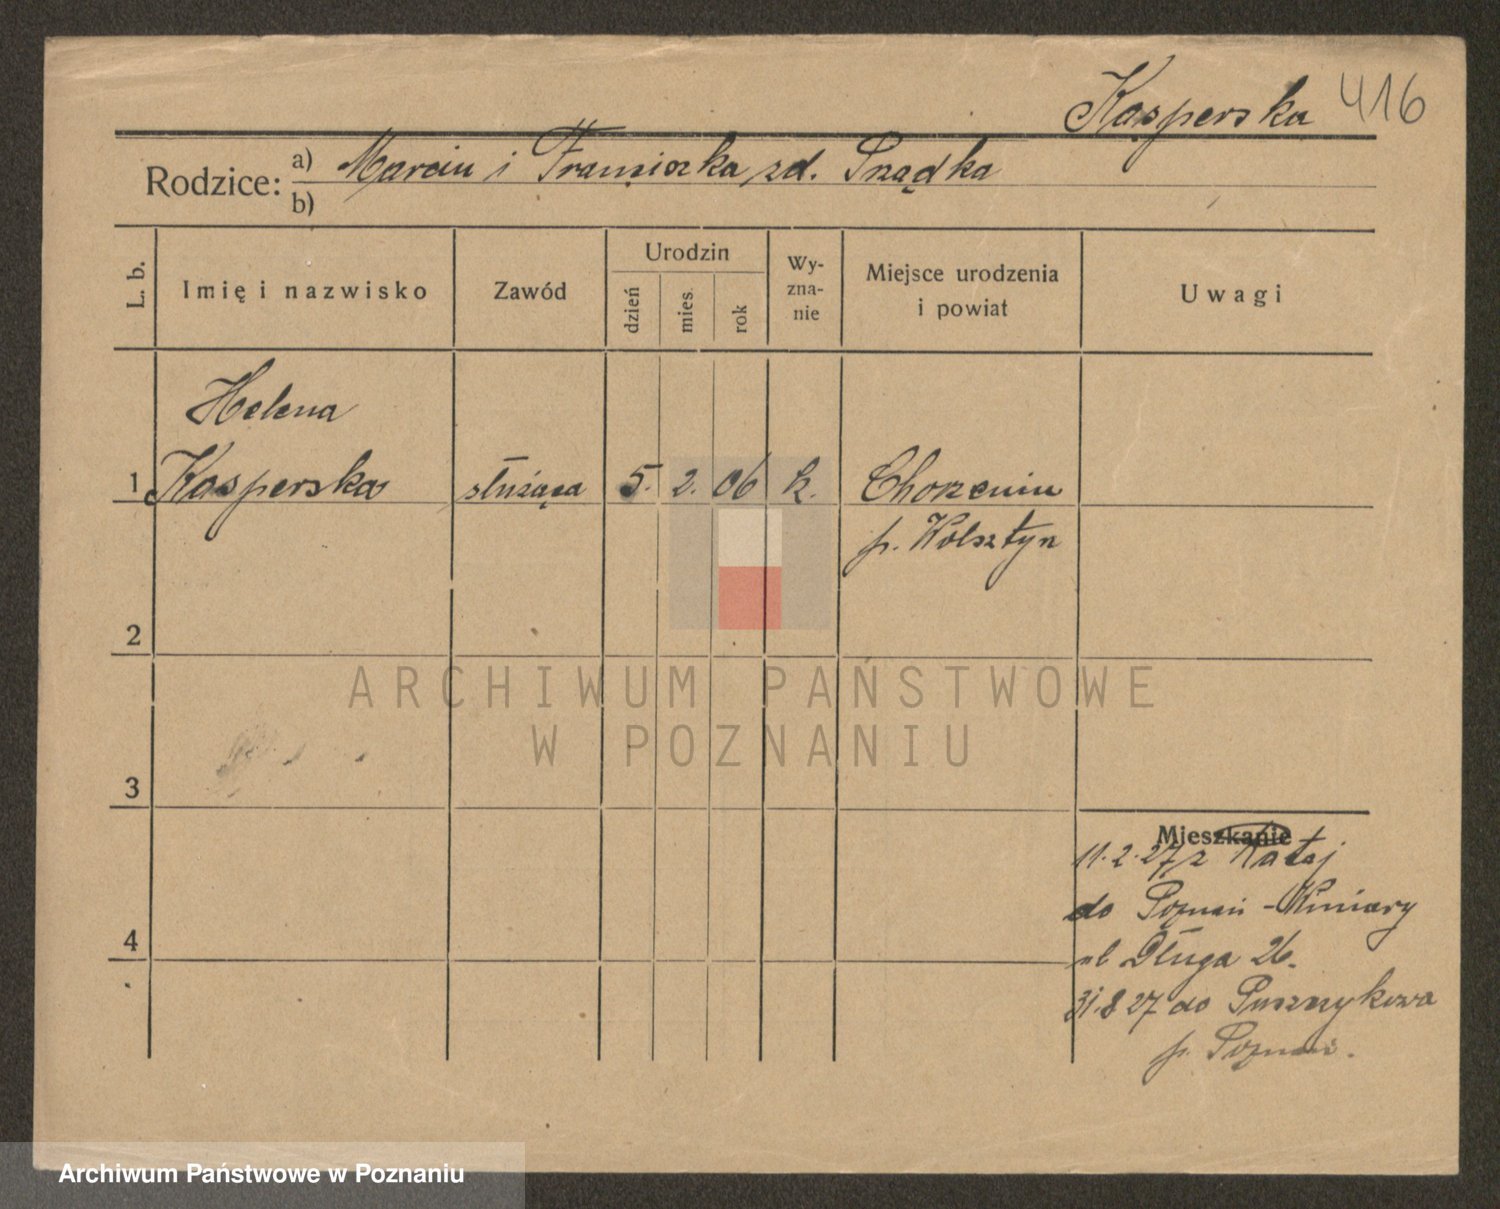 Kasperska 416
Rodzice: a) Marcin i Franciszka zd. Prządka
b)
L. b.
Imię i nazwisko
Zawód
Urodzin
dzień
mies.
rok
Wy-
zna-
nie
Miejsce urodzenia
i powiat
Uwagi
Helena
1 Kasperska służąca 5. 2. 06 k. Chorzemin
p. Wolsztyn
2
3
4
Mieszkanie
11.2.27 z Rataj
do Poznań - Winiary
ul Długa 26.
31.8 27 do Puszczykowa
p. Poznań.
ARCHIWUM PAŃSTWOWE
W POZNANIU
Archiwum Państwowe w Poznaniu